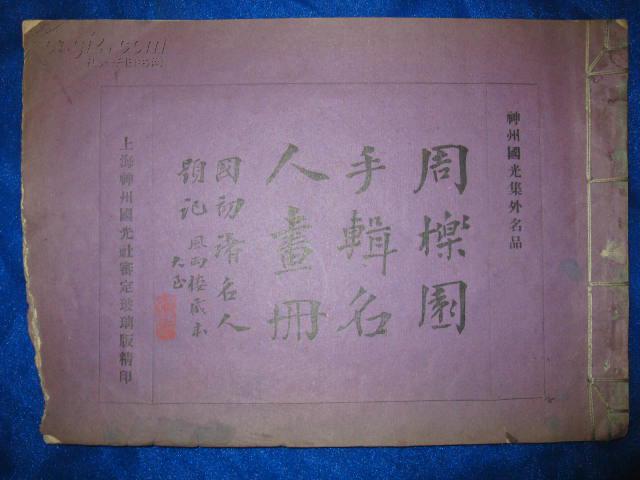 神州國光集外名品
周櫟園
手輯名
人畫冊
國初諸名人
題記 風雨樓藏本
上海神州國光社審定玻璃版精印